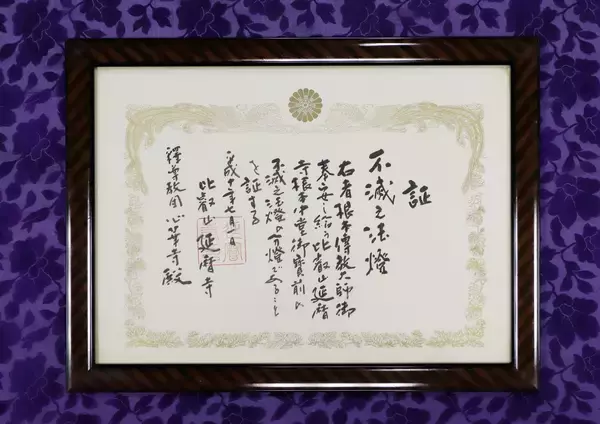 証
不滅之法燈
右者根本傳教大師御
募安し給う比叡山延暦
寺根本中堂御寳前の
不滅之法燈の分燈であること
を証する
平成十年七月一日
比叡山延暦寺
釋尊教団 心華寺殿